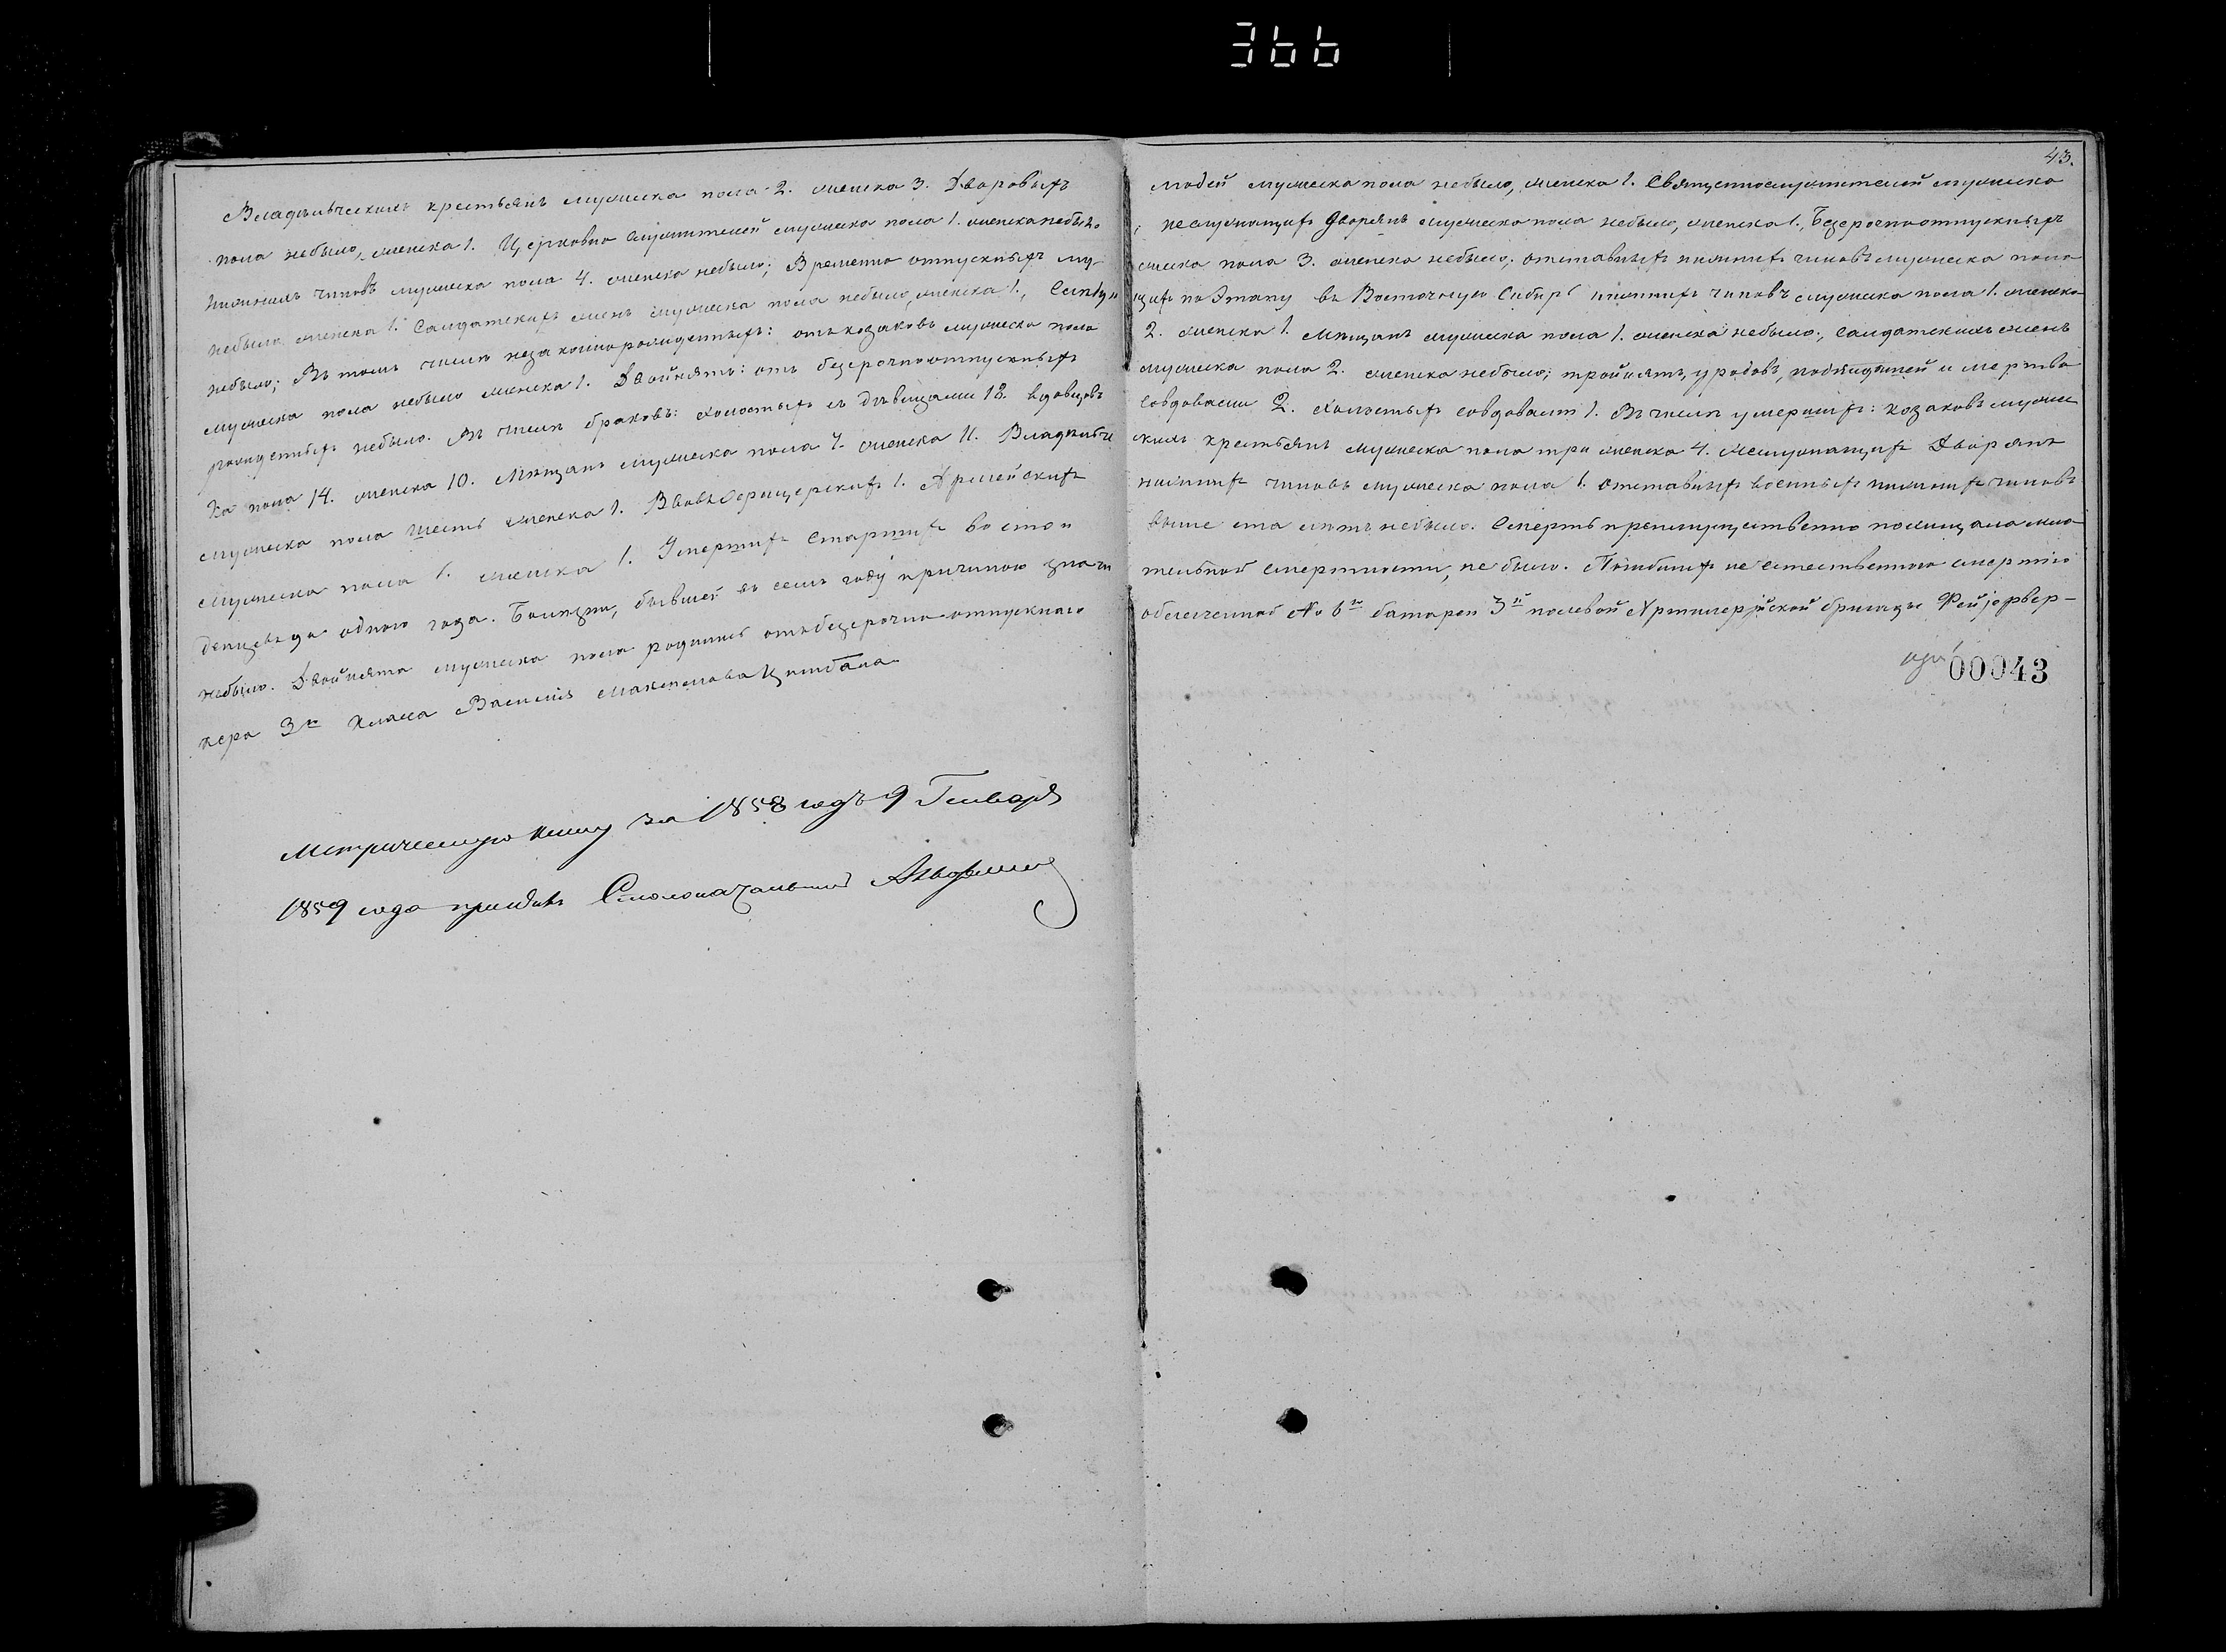 366
43.
Владѣльческихъ крестьянъ мужеска пола 2. женска 3. Дворовыхъ
людей мужеска пола небыло, женска 1. Священнослужителей мужеска
пола небыло, женска 1. Церковно служителей мужеска пола 1. женска небыло
неслужащихъ Дворянъ мужеска пола небыло, женска 1., Безсрочноотпускныхъ
нижнихъ чиновъ мужеска пола 4. женска небыло; Временно отпускныхъ му-
жеска пола 3. женска небыло; отставныхъ нижнихъ чиновъ мужеска пола
небыло женска 1. Салдатскихъ женъ мужеска пола небыло, женска 1.,
щихъ по Этапу въ Восточную Сибирь нижнихъ чиновъ мужеска пола 1. женска
небыло; Въ томъ числѣ незаконнорожденныхъ: отъ козаковъ мужеска пола
2. женска 1. Мѣщанъ мужеска пола 1. женска небыло; салдатскихъ женъ
мужеска пола небыло женска 1. Двойнятъ: отъ безсрочноотпускныхъ
мужеска пола 2. женска небыло; тройнятъ, уродовъ, подкидышей и мертво
рожденныхъ небыло. Въ числѣ браковъ: холостыхъ съ дѣвицами 18. вдовцовъ
совдовами 2. холостыхъ совдовами 1. Въ числѣ умершихъ: козаковъ мужес
ка пола 14. женска 10. Мѣщанъ мужеска пола 7. женска 11. Владѣльче
скихъ крестьянъ мужеска пола три женска 4. неслужащихъ Дворянъ
мужеска пола шесть женска 1. Вдовъ Офицерскихъ 1. Армейскихъ
нижнихъ чиновъ мужеска пола 1. отставныхъ военныхъ нижнихъ чиновъ
мужеска пола 1. женска 1. Умершихъ старшихъ во сто и
выше ста лѣтъ небыло. Смерть преимущественно похищала мла
денцевъ до одного года. Болѣзни, бывшей въ семъ году причиною значи
тельной смертности, не было. Погибшихъ не естественною смертію
небыло. Двойнята мужеска пола родились отъ безсрочно-отпускнаго
облегченной № 6й батареи 3й полевой Артилерійской бригады Фейерверкера
3го класса Василія
00043
Метрическую книгу за 1858 годъ 9 Генваря
1859 года принялъ Столоначальникъ